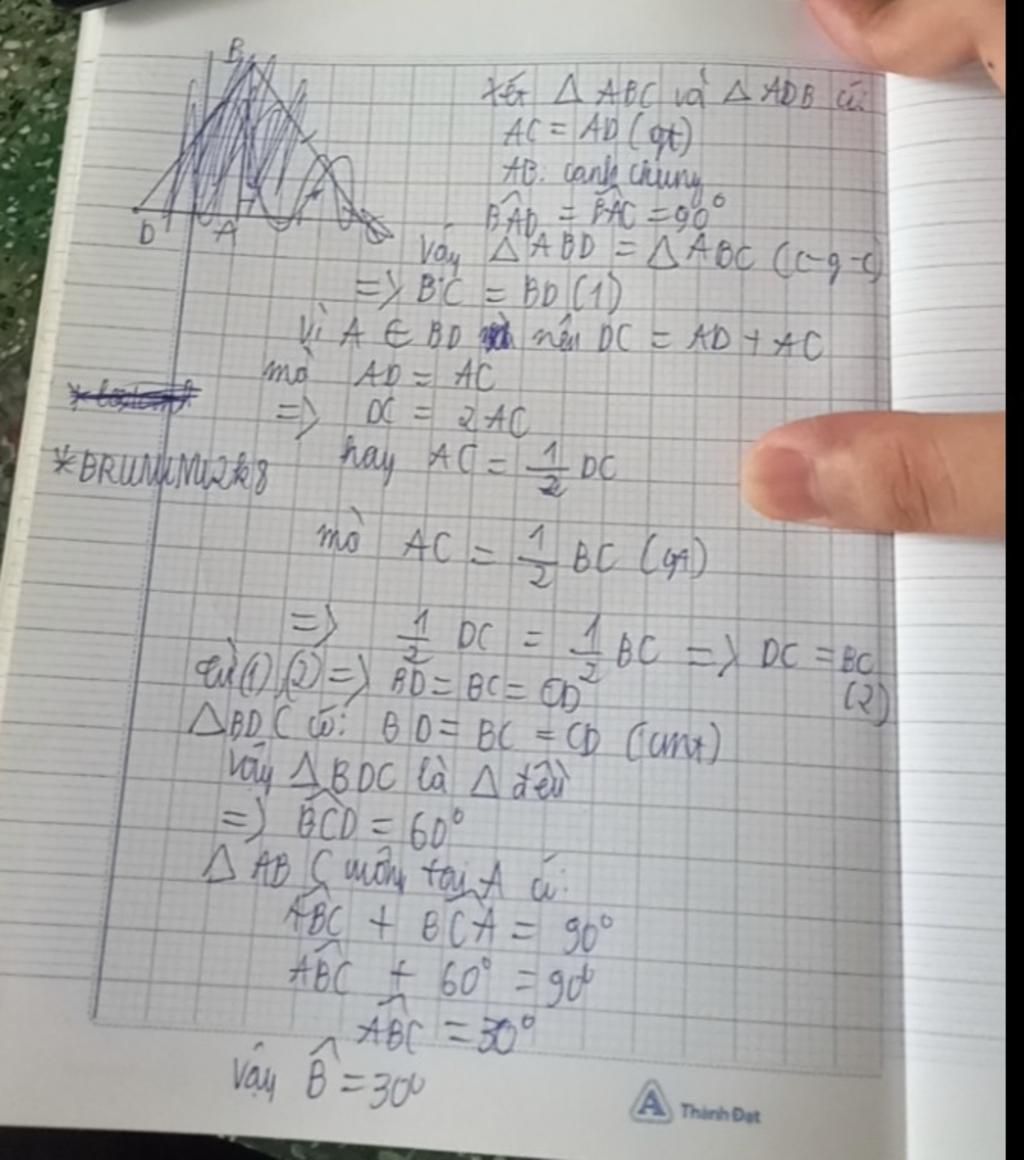 B
D
A
xét Δ ABC và Δ ADB có:
AC = AD (gt)
AB: cạnh chung
BAD = BAC = 90°
Vậy Δ ABD = Δ ABC (c-g-c)
=> BC = BD (1)
Vì A ∈ BD nên DC = AD + AC
mà AD = AC
=> DC = 2 AC
hay AC = 1/2 DC
mà AC = 1/2 BC (gt)
=> 1/2 DC = 1/2 BC => DC = BC (2)
từ (1), (2) => BD = BC = CD
Δ BDC có: BD = BC = CD (cmt)
Vậy Δ BDC là Δ đều
=> BCD = 60°
Δ ABC vuông tại A có:
ABC + BCA = 90°
ABC + 60° = 90°
ABC = 30°
Vậy B = 30°
Thành Đạt